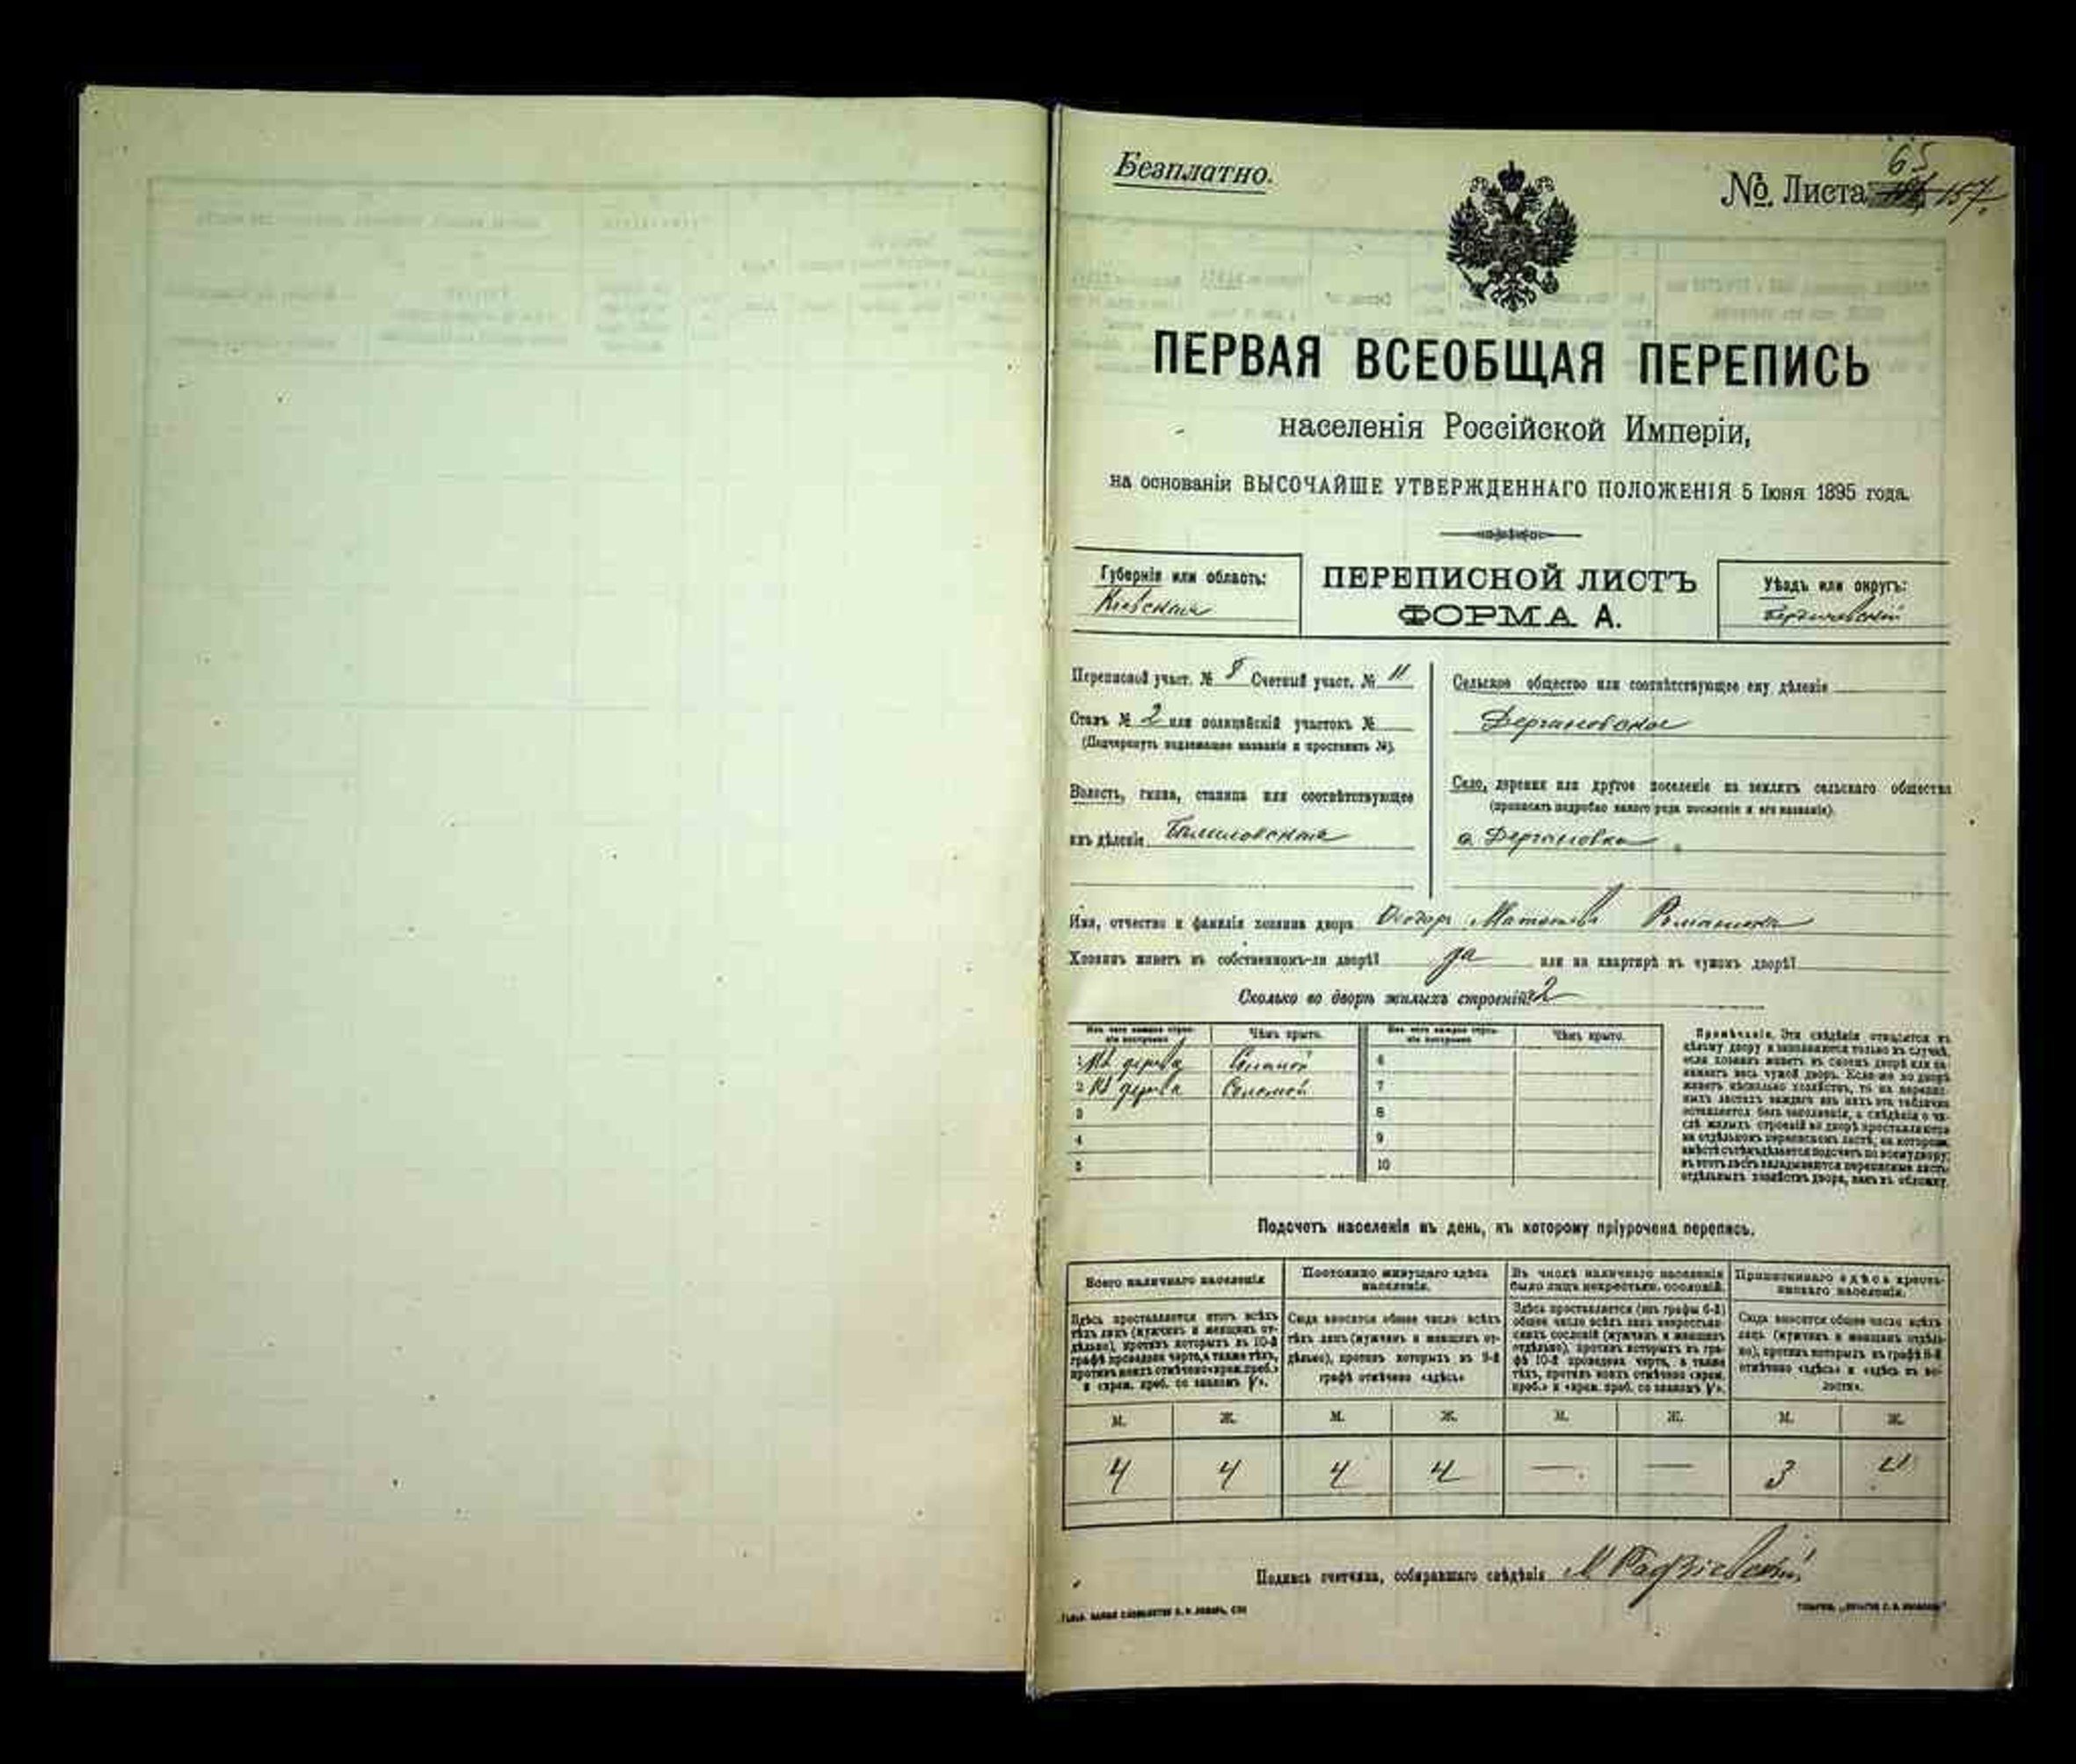 Безплатно.
№ Листа 65 157.
ПЕРВАЯ ВСЕОБЩАЯ ПЕРЕПИСЬ
населенія Россійской Имперіи,
на основаніи ВЫСОЧАЙШЕ УТВЕРЖДЕННАГО ПОЛОЖЕНІЯ 5 Іюня 1895 года.
Губернія или область:
Кіевская
ПЕРЕПИСНОЙ ЛИСТЪ
ФОРМА А.
Уѣздъ или округъ:
Бердичевскій
Переписной участ. № 8 Счетный участ. № 11
Станъ № 2 или полицейскій участокъ №
(Подчеркнуть надлежащее названіе и проставить №).
Волость, гмина, станица или соотвѣтствующее
имъ дѣленіе
Сельское общество или соотвѣтствующее ему дѣленіе
Дергановское
Село, деревня или другое поселеніе на земляхъ сельскаго общества
(прописать подробно какого рода поселеніе и его названіе).
с. Дергановка
Имя, отчество и фамилія хозяина двора Ѳеодоръ
Хозяинъ живетъ въ собственномъ-ли дворѣ? да или на квартирѣ въ чужомъ дворѣ?
Сколько во дворѣ жилыхъ строеній? 2
Изъ чего каждое строеніе построено Чѣмъ крыто. Изъ чего каждое строеніе построено Чѣмъ крыто.
1 Изъ дерева Соломой 6
2 Изъ дерева Соломой 7
3 8
4 9
5 10
Примѣчаніе. Эти свѣдѣнія относятся къ
цѣлому двору и заполняются только въ случаѣ,
если хозяинъ живетъ въ своемъ дворѣ или за-
нимаетъ весь чужой дворъ. Если же во дворѣ
живетъ нѣсколько хозяйствъ, то на перепис-
ныхъ листахъ каждаго изъ нихъ эта табличка
оставляется безъ заполненія, а свѣдѣнія о чи-
слѣ жилыхъ строеній во дворѣ проставляются
на отдѣльномъ переписномъ листѣ, на которомъ
вмѣстѣ съ тѣмъ дѣлается подсчетъ по всему двору;
въ этотъ листъ вкладываются переписные листы
отдѣльныхъ хозяйствъ двора, какъ въ обложку.
Подсчетъ населенія въ день, къ которому пріурочена перепись.
Всего наличнаго населенія
Постоянно живущаго здѣсь населенія.
Въ числѣ наличнаго населенія было лицъ некрестьян. сословій.
Приписаннаго здѣсь крестьянскаго населенія.
Здѣсь проставляется итогъ всѣхъ
тѣхъ лицъ (мужчинъ и женщинъ от-
дѣльно), противъ которыхъ въ 10-й
графѣ проведена черта, а также тѣхъ,
противъ коихъ отмѣчено «врем. преб.»
и «врем. преб. со знакомъ V».
Сюда вносится общее число всѣхъ
тѣхъ лицъ (мужчинъ и женщинъ от-
дѣльно), противъ которыхъ въ 9-й
графѣ отмѣчено «здѣсь»
Здѣсь проставляется (изъ графы 6-й)
общее число всѣхъ лицъ некрестьян-
скихъ сословій (мужчинъ и женщинъ
отдѣльно), противъ которыхъ въ гра-
фѣ 10-й проведена черта, а также
тѣхъ, противъ коихъ отмѣчено «врем.
преб.» и «врем. преб. со знакомъ V».
Сюда вносится общее число всѣхъ
лицъ (мужчинъ и женщинъ отдѣль-
но), противъ которыхъ въ графѣ 8-й
отмѣчено «здѣсь» и «здѣсь въ во-
лости».
М. Ж. М. Ж. М. Ж. М. Ж.
4 4 4 4 — — 3 4
Подпись счетчика, собиравшаго свѣдѣнія М Радзіевскій